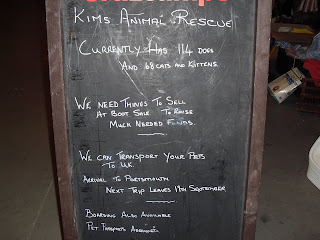 Kims Animal Rescue
Currently Has 114 Dogs
And 68 Cats And Kittens.
We Need Things To Sell
At Boot Sale To Raise
Much Needed Funds.
We Can Transport Your Pets
To U.K.
Arrival To Portsmouth
Next Trip Leaves 19th September
Boarding Also Available
Pet Passports Arranged.